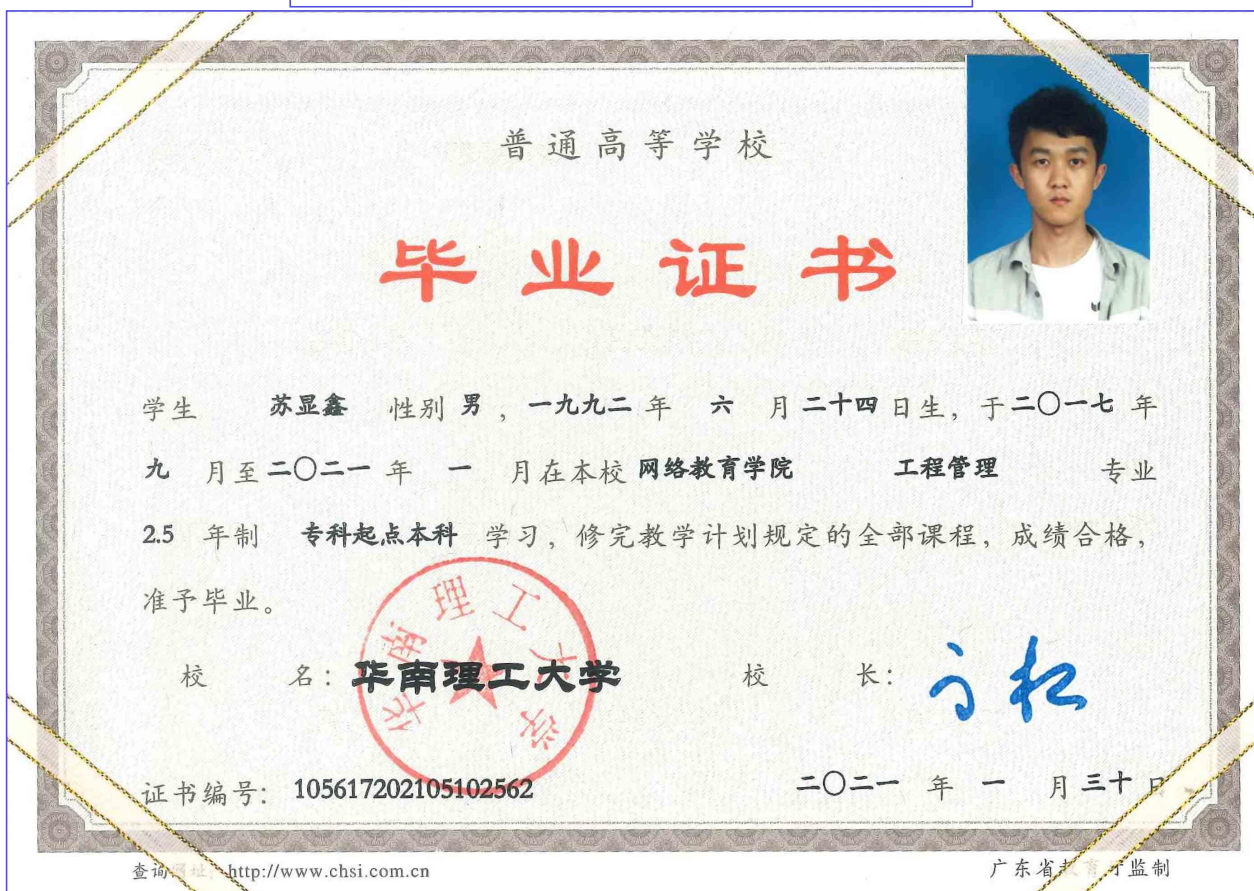 普通高等学校
毕业证书
学生 苏显鑫 性别 男 , 一九九二 年 六 月 二十四 日生, 于 二〇一七 年
九 月至 二〇二一 年 一 月在本校 网络教育学院 工程管理 专业
2.5 年制 专科起点本科 学习, 修完教学计划规定的全部课程, 成绩合格,
准予毕业。
华南理工大学
校 名: 华南理工大学 校 长:
证书编号: 105617202105102562 二〇二一 年 一 月 三十 日
查询网址: http://www.chsi.com.cn 广东省教育厅监制